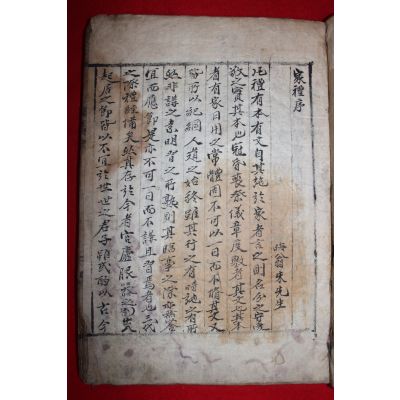 家禮序
晦翁朱先生
凡禮有本有文自其施於家者言之則名分之守愛
敬之實其本也冠昏喪祭儀章度數者其文也其本
者有家日用之常體固不可以一日而不脩其文又
皆所以紀綱人道之始終雖其行之有時施之有所
然非講之素明習之素熟則其臨事之際亦無以合
宜而應節是亦不可一日而不講且習焉者也三代
之際禮經備矣然其存於今者宮廬服之制出入
起居之節皆以不宜於世世之君子雖或酌以古今